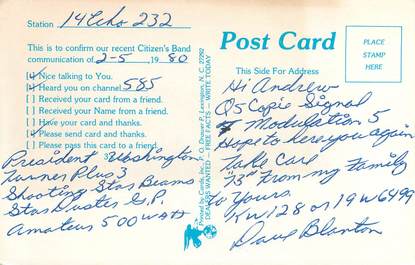 Station 14 Echo 232
This is to confirm our recent Citizen's Band
communication of 2-5, 1980
[✓] Nice talking to You.
[✓] Heard you on channel 585
[ ] Received your card from a friend.
[ ] Received your Name from a friend.
[ ] Have your card and thanks.
[✓] Please send card and thanks.
[ ] Please pass this card to a friend.
President Washington
Turner Plus 3
Shooting Star Beams
Star Duster G.P.
Amateur 500 Watt
Printed by Cards, Inc., P. O. Drawer P, Lexington, N. C. 27292
DEALERS WANTED — FREE FACTS — WRITE TODAY
Post Card
PLACE
STAMP
HERE
This Side For Address
Hi Andrew
Q5 Copie Signal
Modulation 5
Hope to here you again
Take Care
"73" From my Family
To Yours.
KW128 or 19W6499
Dave Blanton